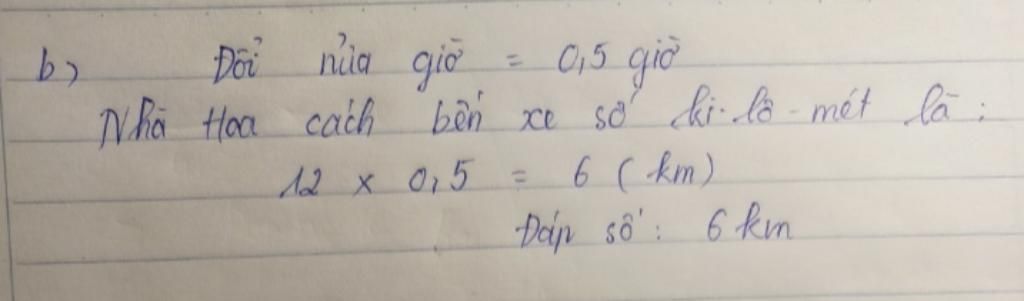 b) Đổi nửa giờ = 0,5 giờ
Nhà Hoa cách bến xe số ki-lô-mét là:
12 x 0,5 = 6 (km)
Đáp số: 6 km